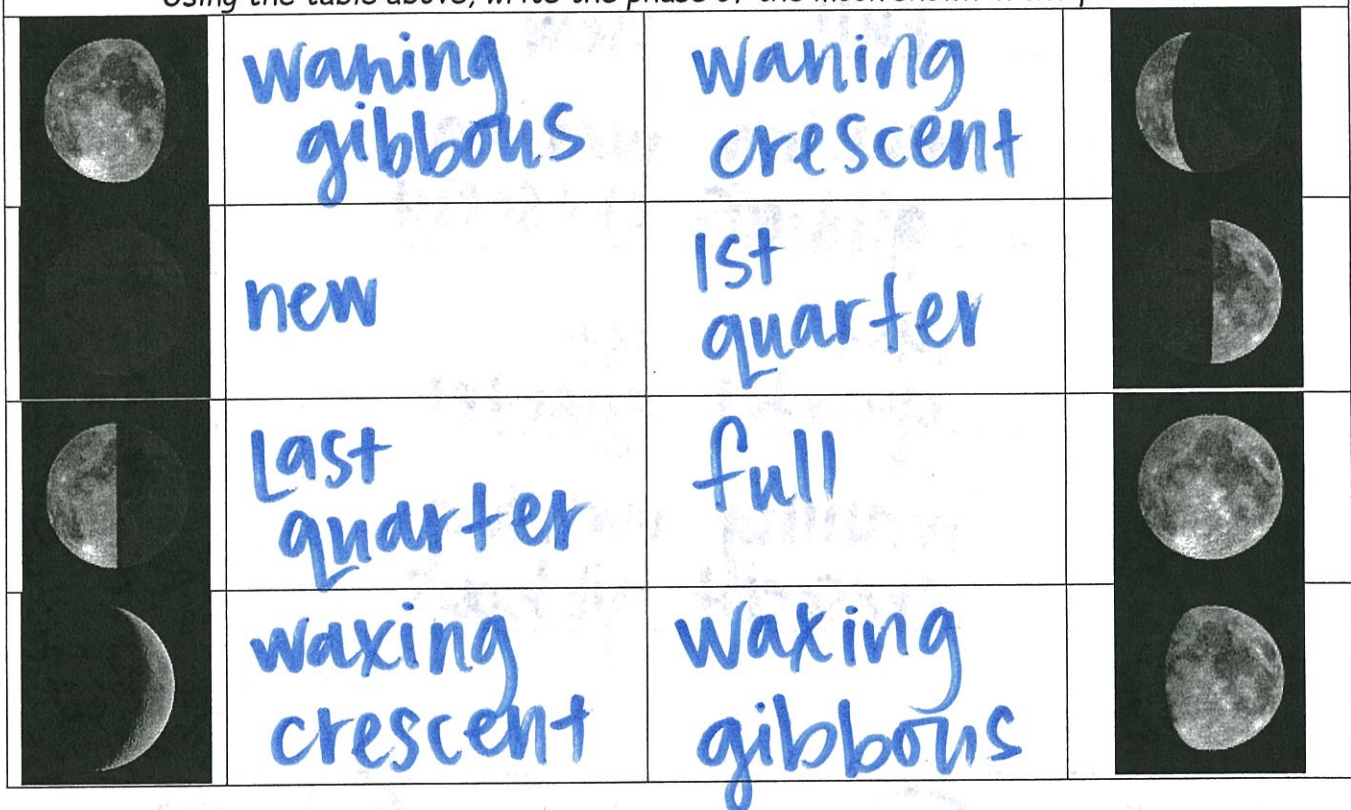 Using the table above, write the phase of the moon shown in the
waning
gibbous
waning
crescent
new
1st
quarter
Last
quarter
full
waxing
crescent
waxing
gibbous